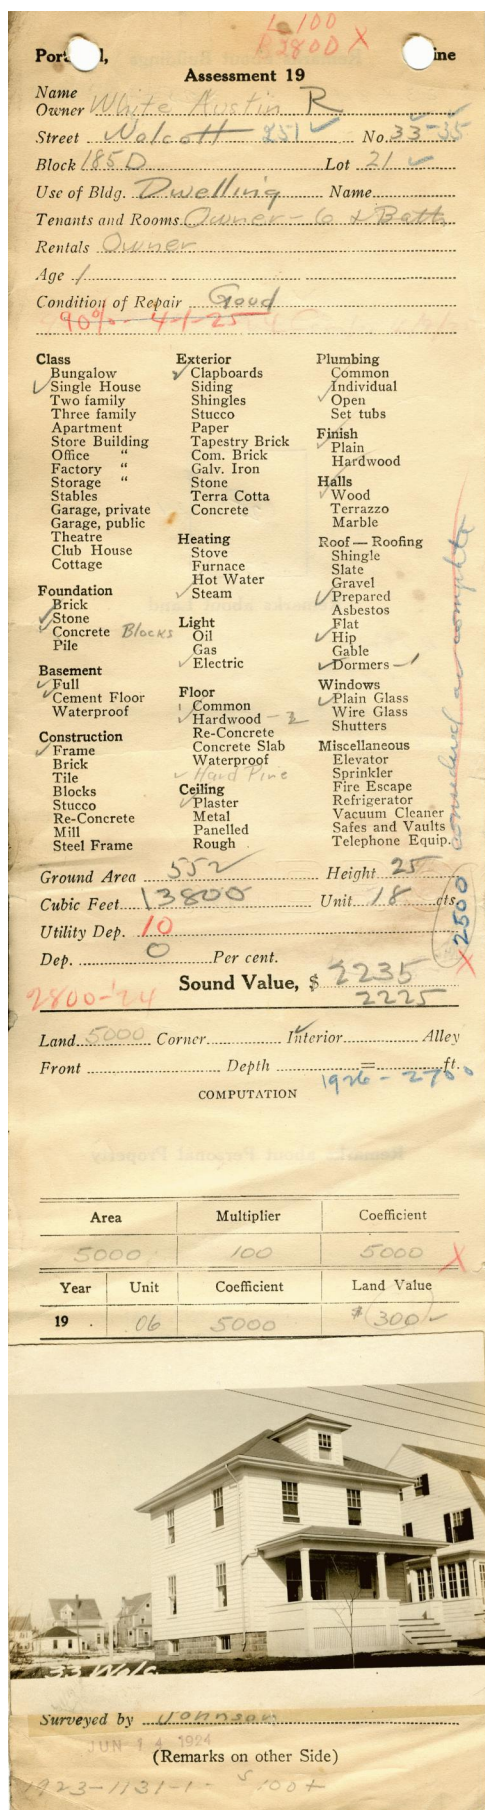 L-100
B 2800 X
Port , ine
Assessment 19
Name
Owner White Austin R
Street Walcott 251 No. 33-35
Block 185D Lot 21
Use of Bldg. Dwelling Name
Tenants and Rooms Owner - 6 & Bath
Rentals Owner
Age 1
Condition of Repair Good
90% - 4-1-25
Class
Bungalow
Single House
Two family
Three family
Apartment
Store Building
Office "
Factory "
Storage "
Stables
Garage, private
Garage, public
Theatre
Club House
Cottage
Foundation
Brick
Stone
Concrete Blocks
Pile
Basement
Full
Cement Floor
Waterproof
Construction
Frame
Brick
Tile
Blocks
Stucco
Re-Concrete
Mill
Steel Frame
Exterior
Clapboards
Siding
Shingles
Stucco
Paper
Tapestry Brick
Com. Brick
Galv. Iron
Stone
Terra Cotta
Concrete
Heating
Stove
Furnace
Hot Water
Steam
Light
Oil
Gas
Electric
Floor
Common
Hardwood - 2
Re-Concrete
Concrete Slab
Waterproof
Hard Pine
Ceiling
Plaster
Metal
Panelled
Rough
Plumbing
Common
Individual
Open
Set tubs
Finish
Plain
Hardwood
Halls
Wood
Terrazzo
Marble
Roof — Roofing
Shingle
Slate
Gravel
Prepared
Asbestos
Flat
Hip
Gable
Dormers - 1
Windows
Plain Glass
Wire Glass
Shutters
Miscellaneous
Elevator
Sprinkler
Fire Escape
Refrigerator
Vacuum Cleaner
Safes and Vaults
Telephone Equip.
X 2500 considered as complete
Ground Area 552 Height 25
Cubic Feet 13800 Unit 18 cts.
Utility Dep. 10
Dep. 0 Per cent.
Sound Value, $ 2235
2800-'24 2225
Land 5000 Corner Interior Alley
Front Depth = ft.
1926 - 2700
COMPUTATION
Area Multiplier Coefficient
5000 100 5000 X
Year Unit Coefficient Land Value
19 . 06 5000 $ 300
33 Walc
Surveyed by Johnson
JUN 14 1924
(Remarks on other Side)
1923-1131-1- $ 100+